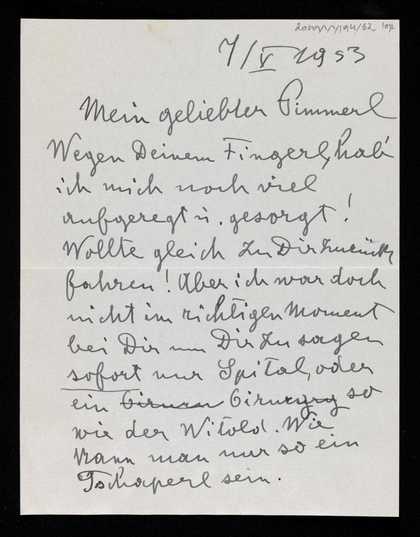 7/V 1953
Mein geliebter Pimmerl
Wegen Deinem Fingerl, hab'
ich mich noch viel
aufgeregt u. gesorgt!
Wollte gleich zu Dir zurück
fahren! Aber ich war doch
nicht im richtigen Moment
bei Dir um Dir zu sagen
sofort nur Spital, oder
ein so
wie der Witold. Wie
kann man nur so ein
Tschaperl sein.